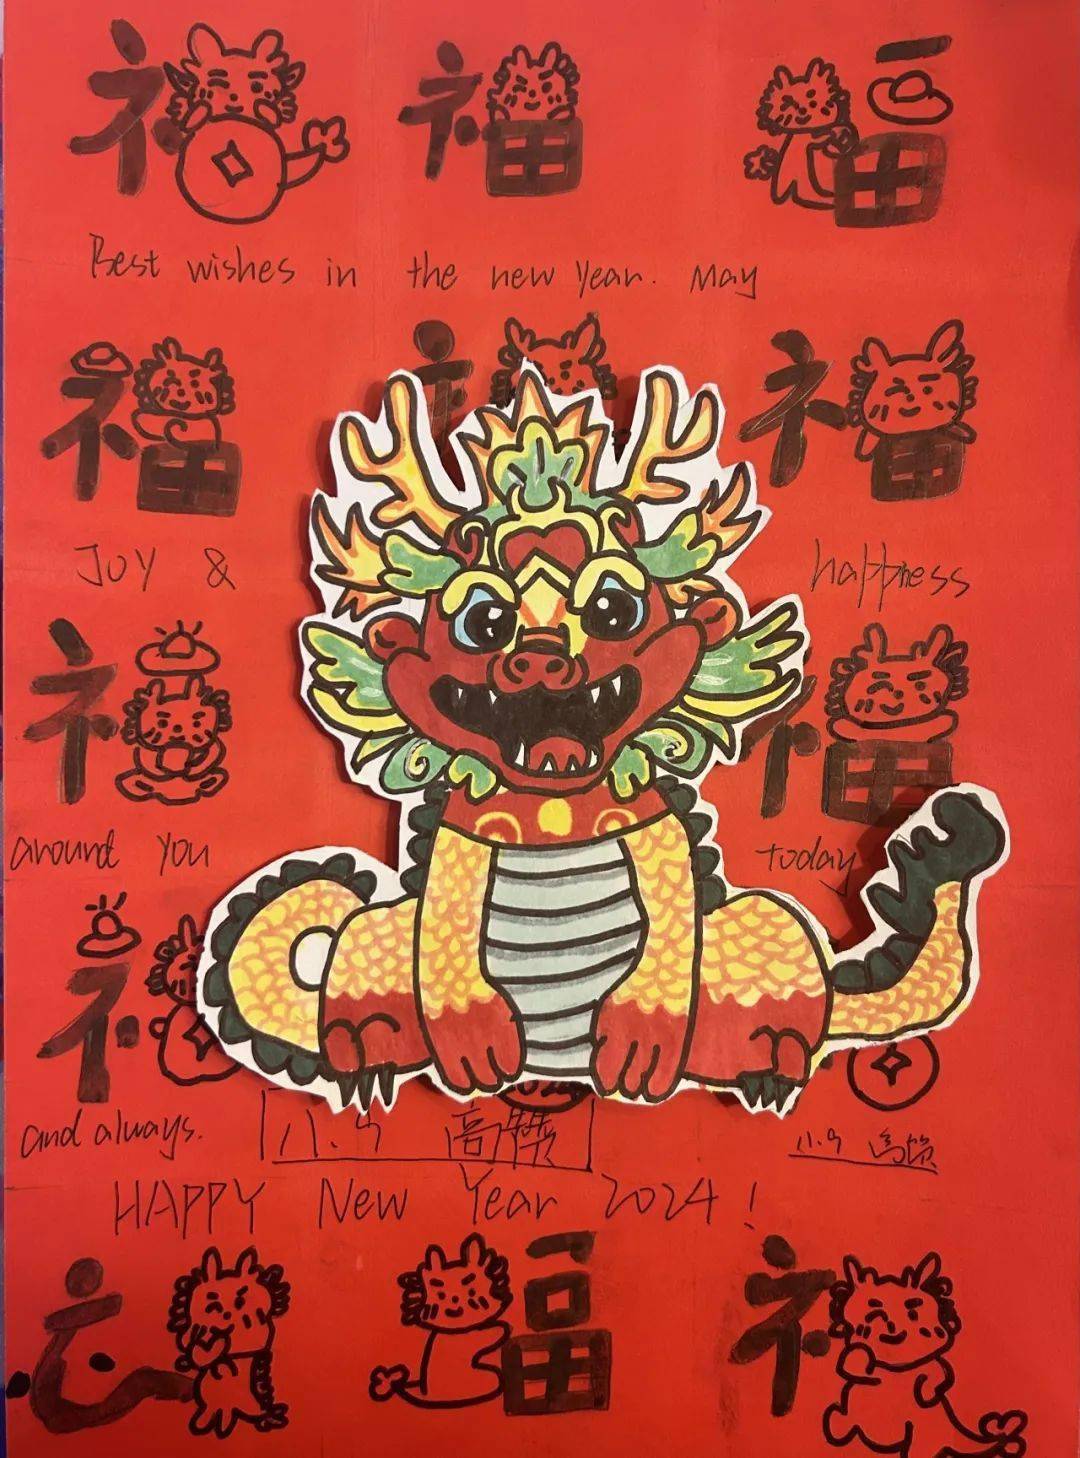 福 福
Best wishes in the new year. May
福 福
Joy & happiness
福 福
around you today
and always.
八.9 高赞
八.9 高赞
HAPPY New Year 2024!
福